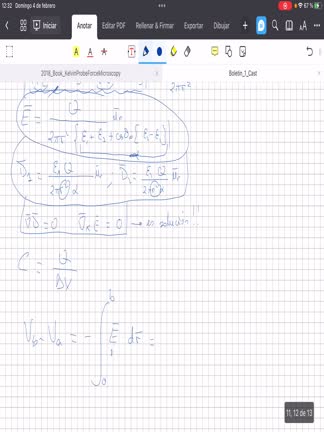 12:32 Domingo 4 de febrero
67 %
Iniciar Anotar Editar PDF Rellenar & Firmar Exportar Dibujar
2018_Book_KelvinProbeForceMicroscopy
Boletin_1_Cast
2πr²
Ē = Q / 2πr² [ε₁+ε₂+cosθ₀[ε₁-ε₂]]
D̄₁ = ε₁Q / 2πr²α ūr , D̄₂ = ε₂Q / 2πr²α ūr
∇D̄=0 ∇×Ē=0 → es solución!!
C = Q / ΔV
V_b - V_a = - ∫ₐᵇ Ē dr̄ =
11, 12 de 13